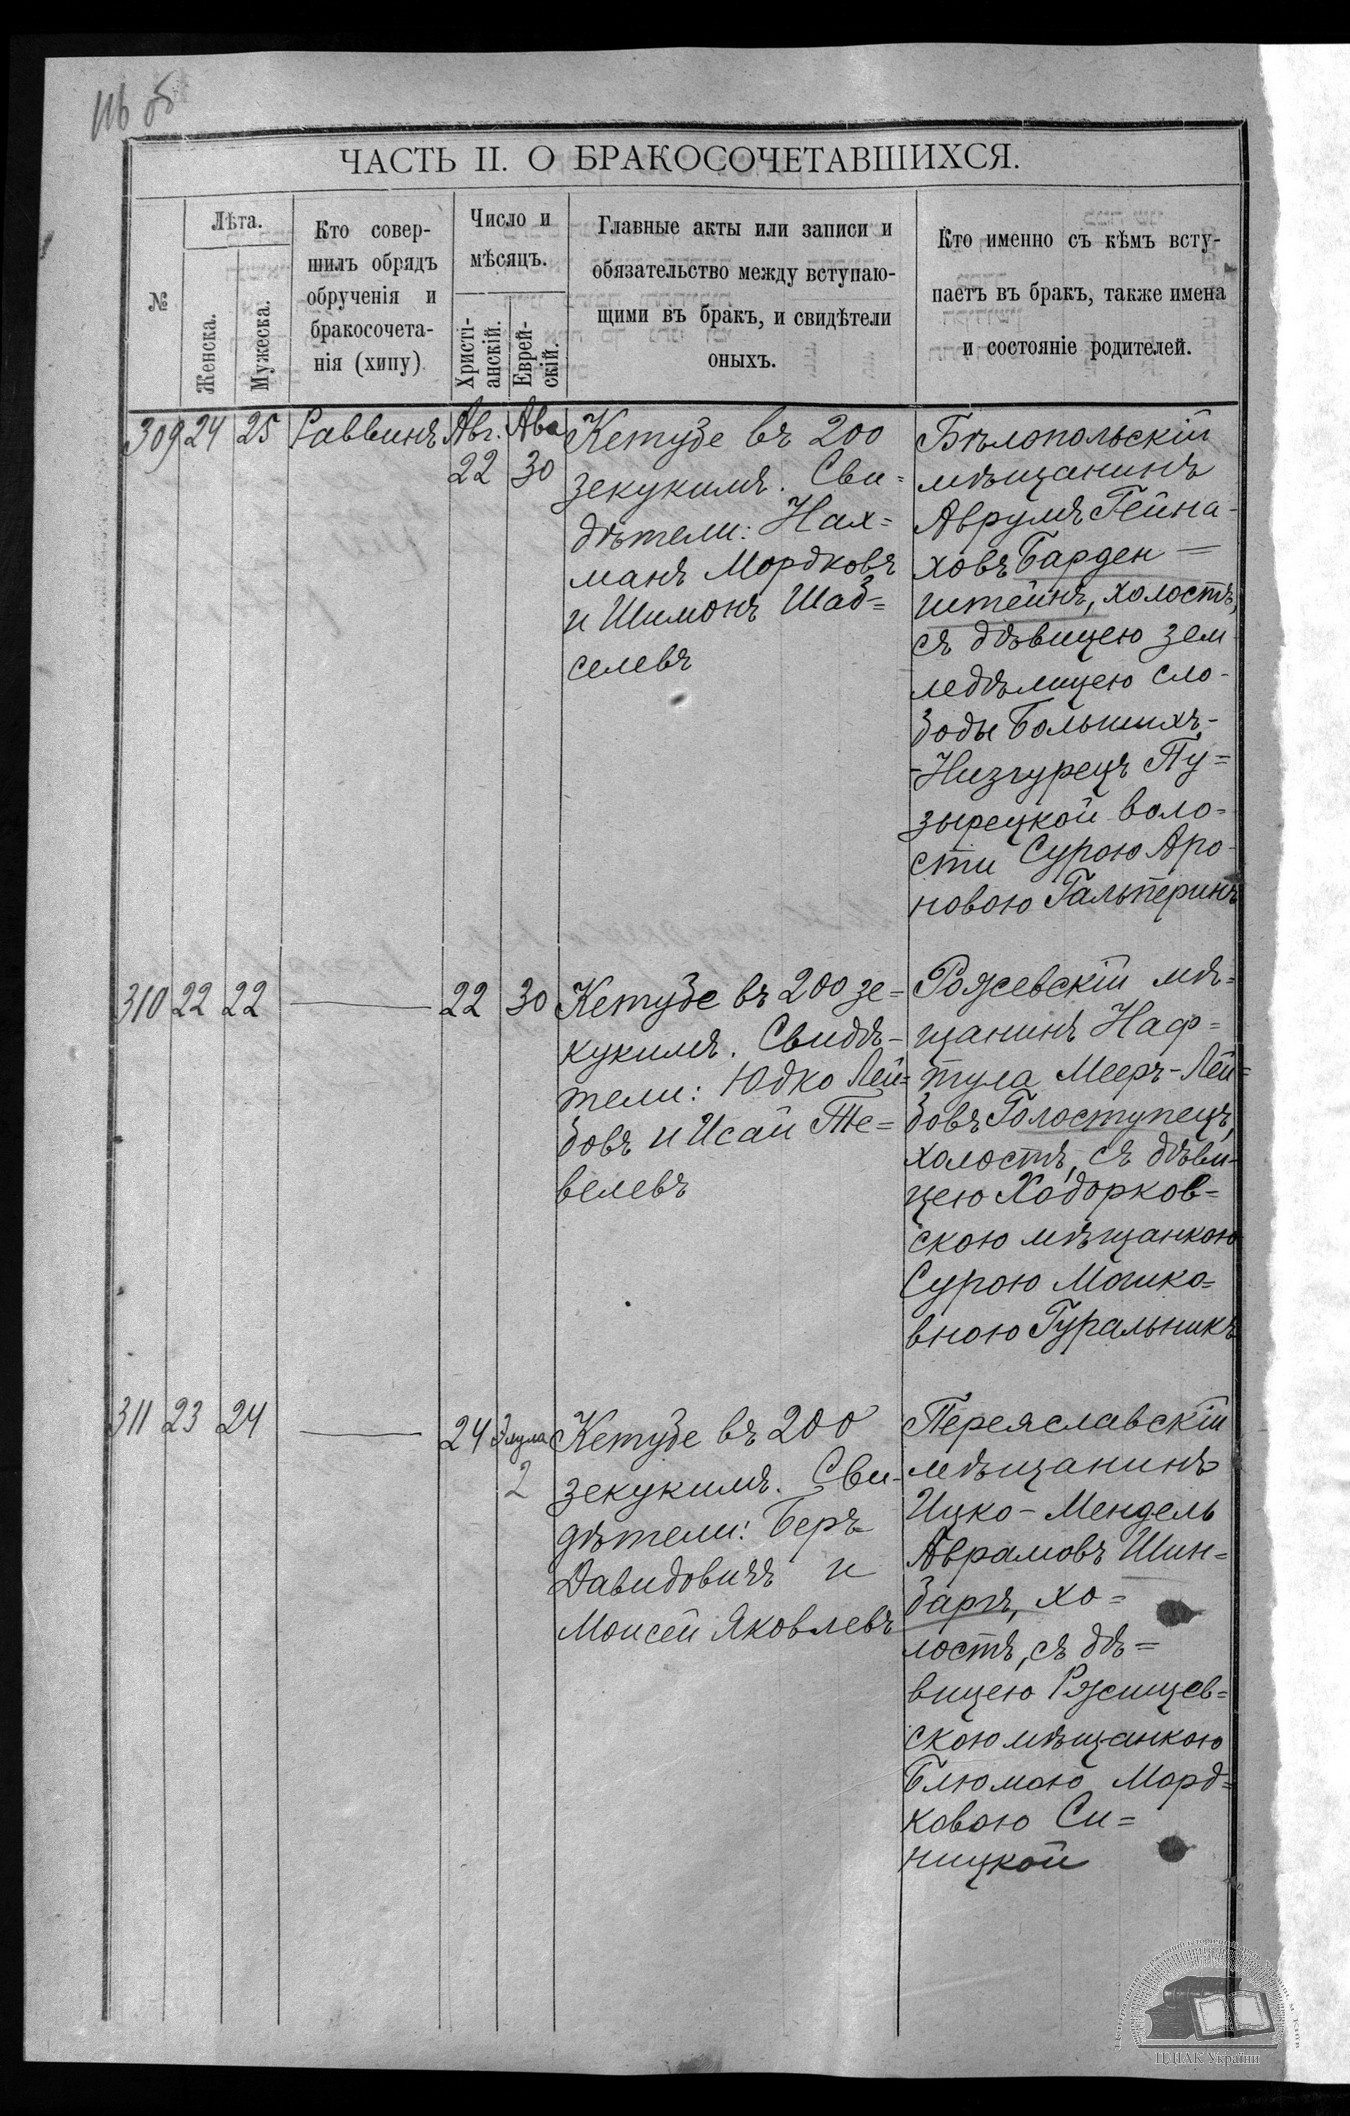 ЧАСТЬ II. О БРАКОСОЧЕТАВШИХСЯ.
№
Лѣта.
Женска.
Мужеска.
Кто совер-
шилъ обрядъ
обрученія и
бракосочета-
нія (хипу)
Число и
мѣсяцъ.
Христі-
анскій.
Еврей-
скій.
Главные акты или записи и
обязательство между вступаю-
щими въ бракъ, и свидѣтели
оныхъ.
Кто именно съ кѣмъ всту-
паетъ въ бракъ, также имена
и состояніе родителей.
309 24 25 Раввинъ Авг. Ава
22 30
Кетубе въ 200
зекукимъ. Сви=
дѣтели: Нах=
манъ Мордковъ
и Шимонъ Шаб=
селевъ
Бѣлопольскій
мѣщанинъ
Аврумъ Гейна-
ховъ Барден=
штейнъ, холостъ,
съ дѣвицею зем
ледѣлицею сло-
боды Большихъ-
-Низгурецъ Пу=
зырецкой воло=
сти Сурою Аро-
новою Гальперинъ
310 22 22 — 22 30
Кетубе въ 200 зе=
кукимъ. Свидѣ-
тели: Юдко Лей=
бовъ и Исай Те=
велевъ
Рожевскій мѣ-
щанинъ Наф=
тула Мееръ-Лей=
бовъ Голоступецъ,
холостъ, съ дѣви-
цею Ходорков=
скою мѣщанкою
Сурою Мошко=
вною Гуральникъ
311 23 24 — 24 Элула
2
Кетубе въ 200
зекукимъ. Сви-
дѣтели: Беръ
Давидовичъ и
Моисей Яковлевъ
Переяславскій
мѣщанинъ
Ицко-Мендель
Аврамовъ Шин=
баръ, хо=
лостъ, съ дѣ=
вицею Ржищев=
скою мѣщанкою
Блюмою Морд=
ковою Си=
ницкой
ЦДІАК України